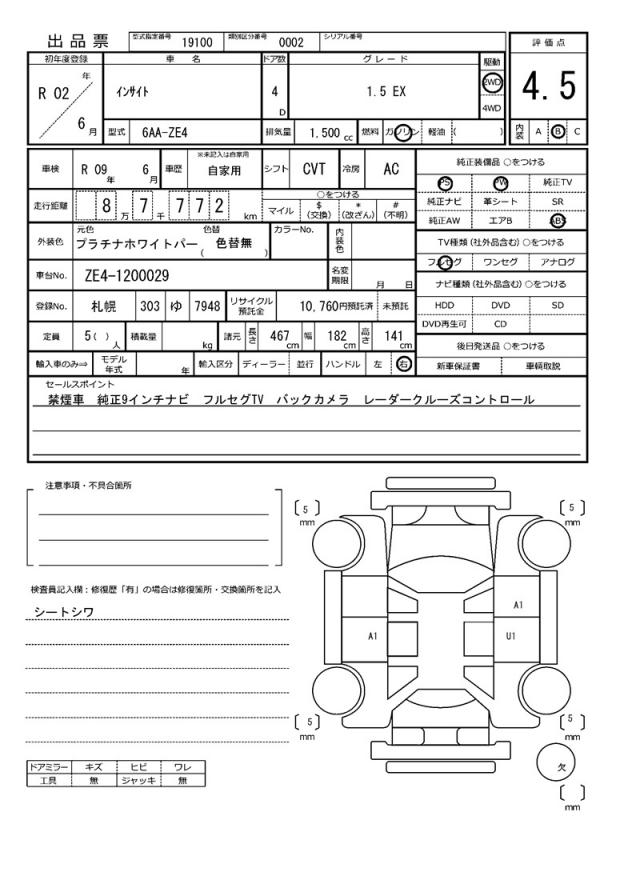 出品票 型式指定番号 19100 類別区分番号 0002 シリアル番号
評価点
初年度登録 車名 ドア数 グレード 駆動
R 02 年 6月 インサイト 4D 1.5 EX 2WD 4WD
4.5
型式 6AA-ZE4 排気量 1.500 cc 燃料 ガソリン 軽油 ( )
内装 A B C
車検 R 09年 6月 車歴 ※未記入は自家用 自家用 シフト CVT 冷房 AC
純正装備品 ○をつける
PS PW 純正TV
純正ナビ 革シート SR
純正AW エアB ABS
走行距離 8万 7千 7 7 2 km ○をつける
マイル $(交換) *(改ざん) #(不明)
外装色 元色 プラチナホワイトパー 色替 ( 色替無 ) カラーNo. 内装色
TV種類 (社外品含む) ○をつける
フルセグ ワンセグ アナログ
車台No. ZE4-1200029 名変期限 月 日
ナビ種類 (社外品含む) ○をつける
HDD DVD SD
DVD再生可 CD
登録No. 札幌 303 ゆ 7948 リサイクル預託金 10,760円預託済 未預託
定員 5( )人 積載量 kg 諸元 長さ 467cm 幅 182cm 高さ 141cm
後日発送品 ○をつける
新車保証書 車輌取説
輸入車のみ⇒ モデル年式 年 輸入区分 ディーラー 並行 ハンドル 左 右
セールスポイント
禁煙車 純正9インチナビ フルセグTV バックカメラ レーダークルーズコントロール
注意事項・不具合箇所
〔 5 〕mm 〔 5 〕mm
検査員記入欄：修復歴「有」の場合は修復箇所・交換箇所を記入
シートシワ
A1
A1 U1
〔 5 〕mm 〔 5 〕mm
ドアミラー キズ ヒビ ワレ
工具 無 ジャッキ 無
欠
〔 〕mm